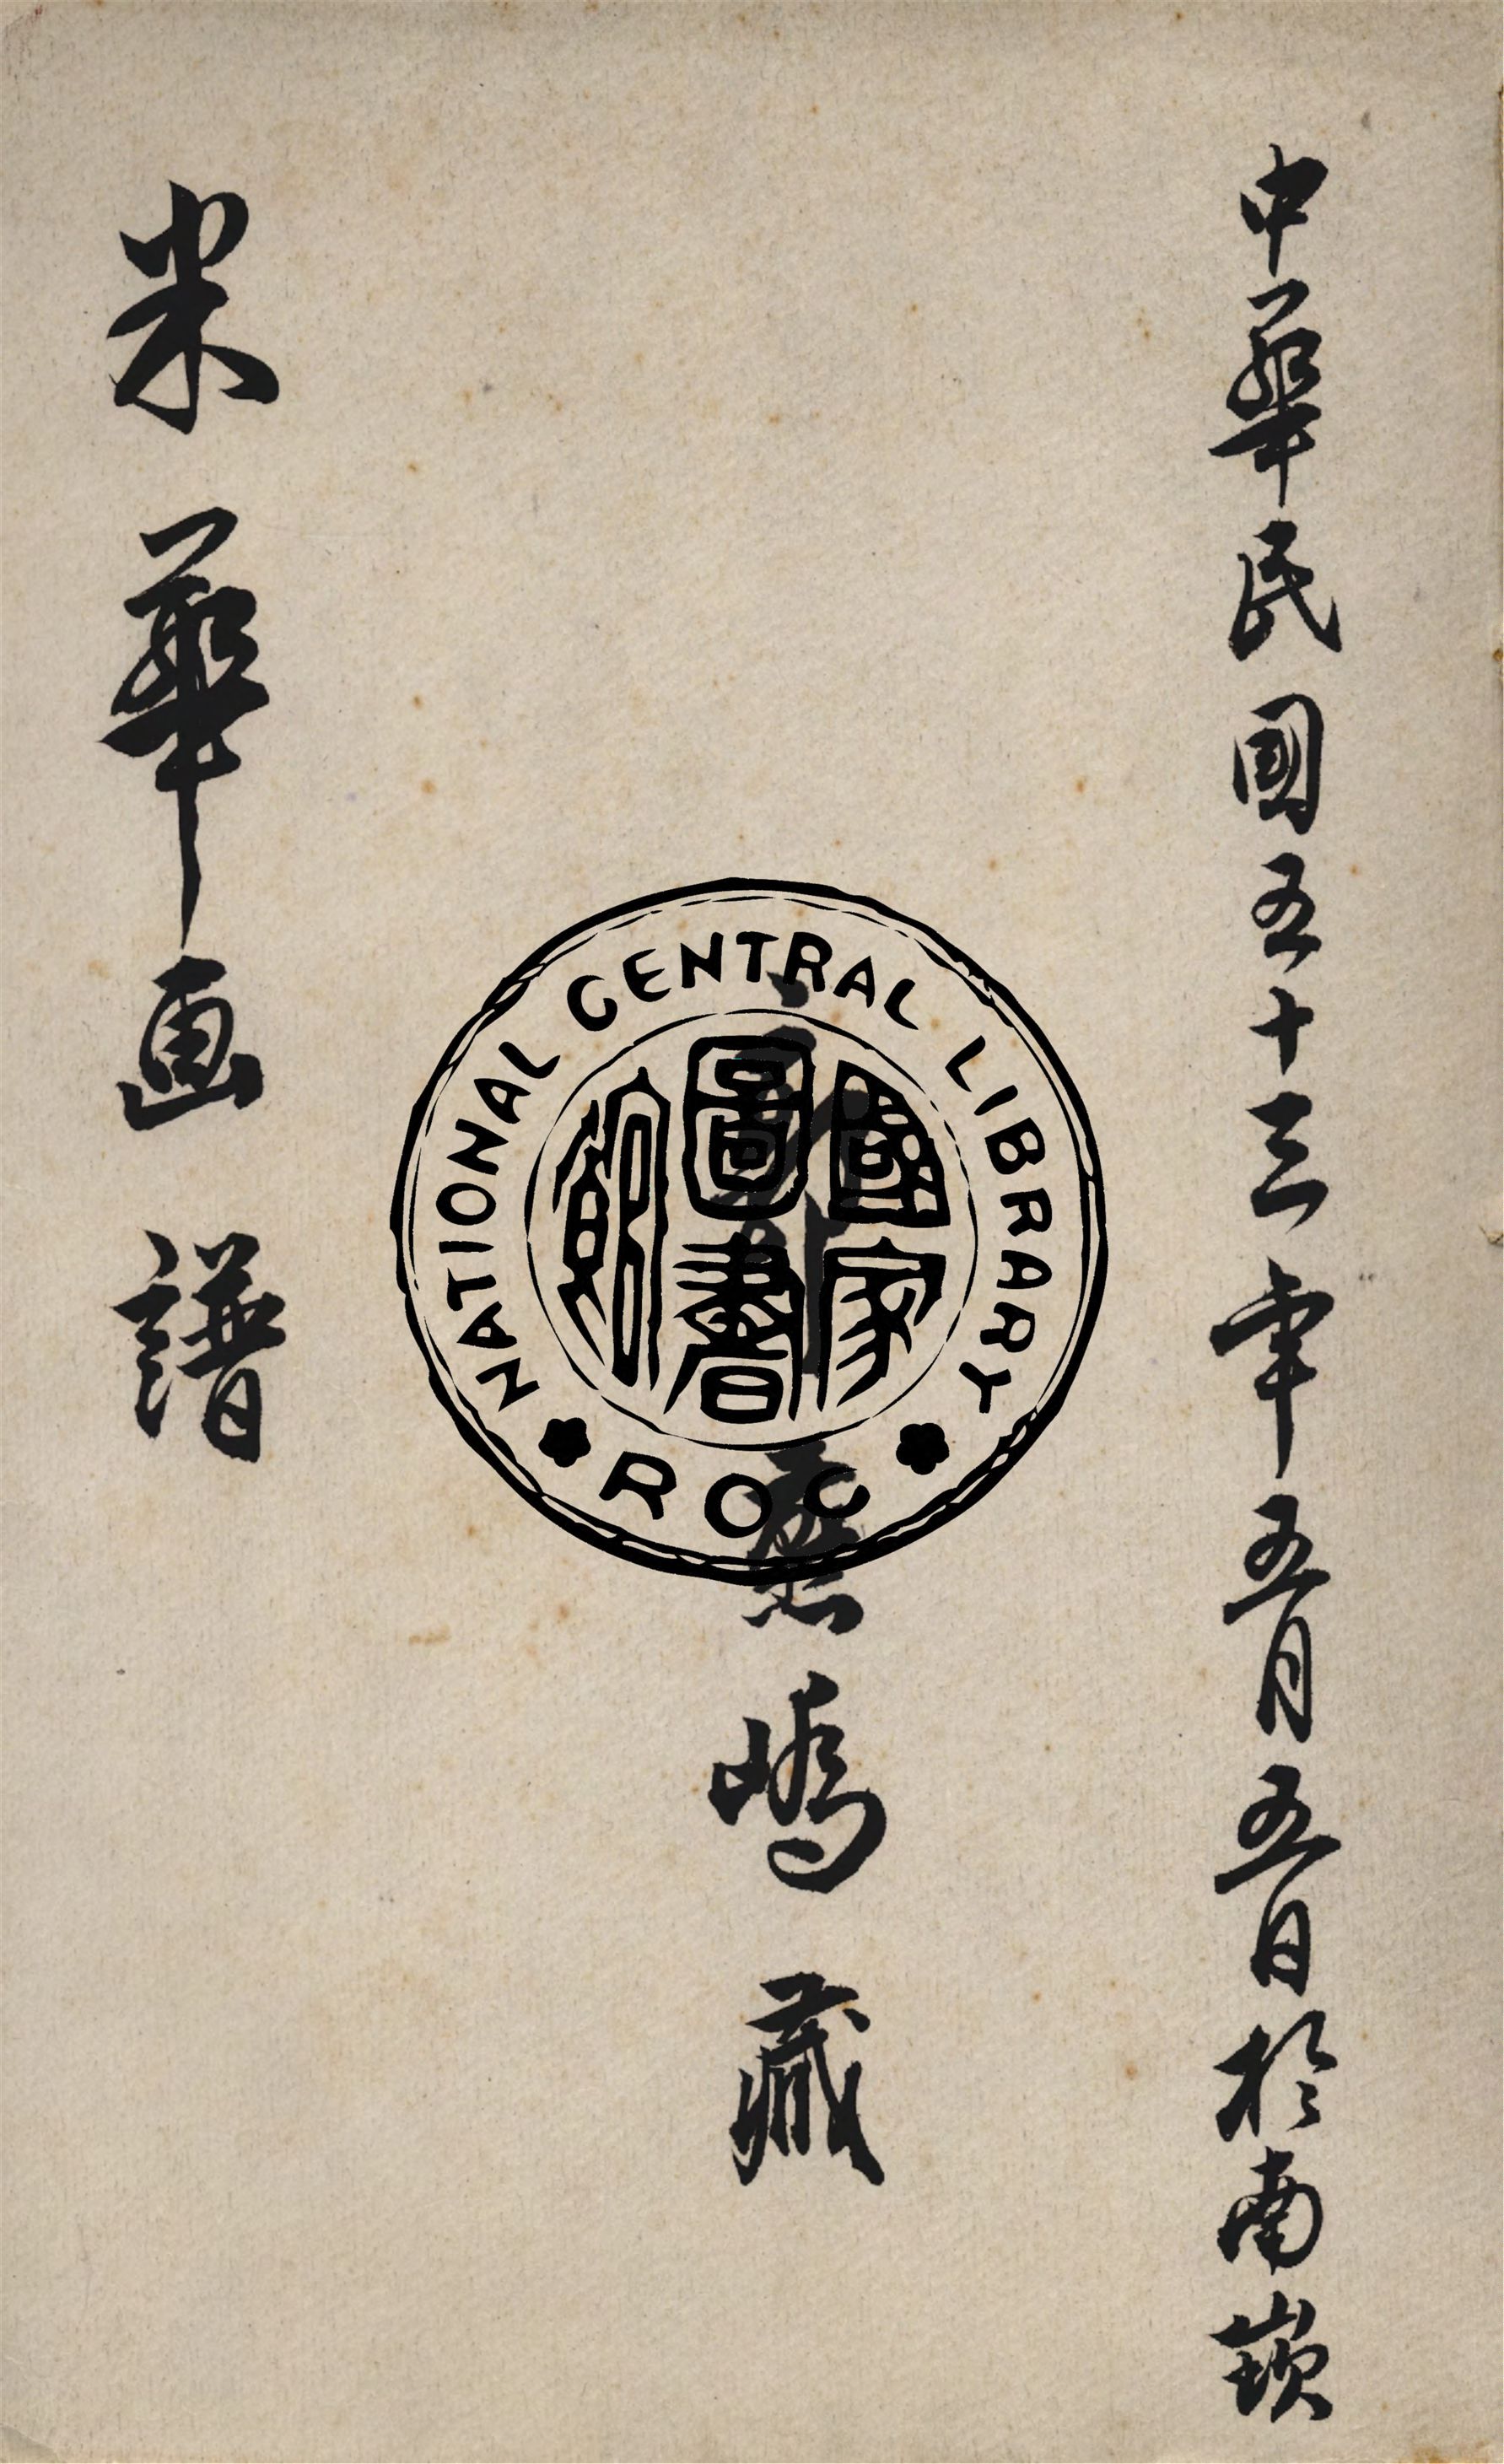 中華民國五十三年五月五日於南崁
嶋藏
米華画譜
NATIONAL CENTRAL LIBRARY
ROC
國家
圖書
館